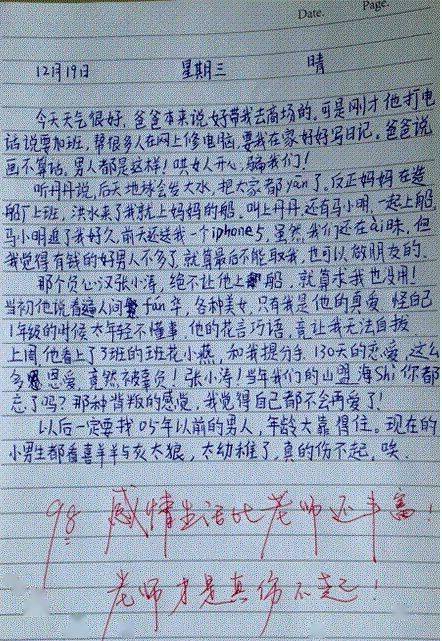 Date.
Page.
12月19日 星期三 晴
今天天气很好，爸爸本来说好带我去商场的，可是刚才他打电
话说要加班，帮很多人在网上修电脑，要我在家好好写日记。爸爸说
画不算话，男人都是这样！哄女人开心，骗我们！
听丹丹说，后天地球会发大水，把大家都yān了，反正妈妈在造
船厂上班，洪水来了我就上妈妈的船，叫上丹丹，还有马小明，一起上船，
马小明追了我好久，前天还送我一个iphone5，虽然我们还在ài昧，但
我觉得有钱的好男人不多了，就算最后不能取我，也可以做朋友的。
那个负心汉张小涛，绝不让他上船，就算求我也没用！
当初他说看遍人间fán华，各种美女，只有我是他的真爱，怪自己
1年级的时候太年轻不懂事，他的花言巧语，竟让我无法自拔
上周他看上了3班的班花小燕，和我提分手，130天的恋爱，这么
多恩爱，竟然被辜负！张小涛！当年我们的山盟海Shi你都
忘了吗？那种背叛的感觉，我觉得自己都不会再爱了！
以后一定要找05年以前的男人，年龄大靠得住。现在的
小男生都看喜羊羊与灰太狼，太幼稚了，真的伤不起，唉．
98 感情生活比老师还丰富！
老师才是真伤不起！